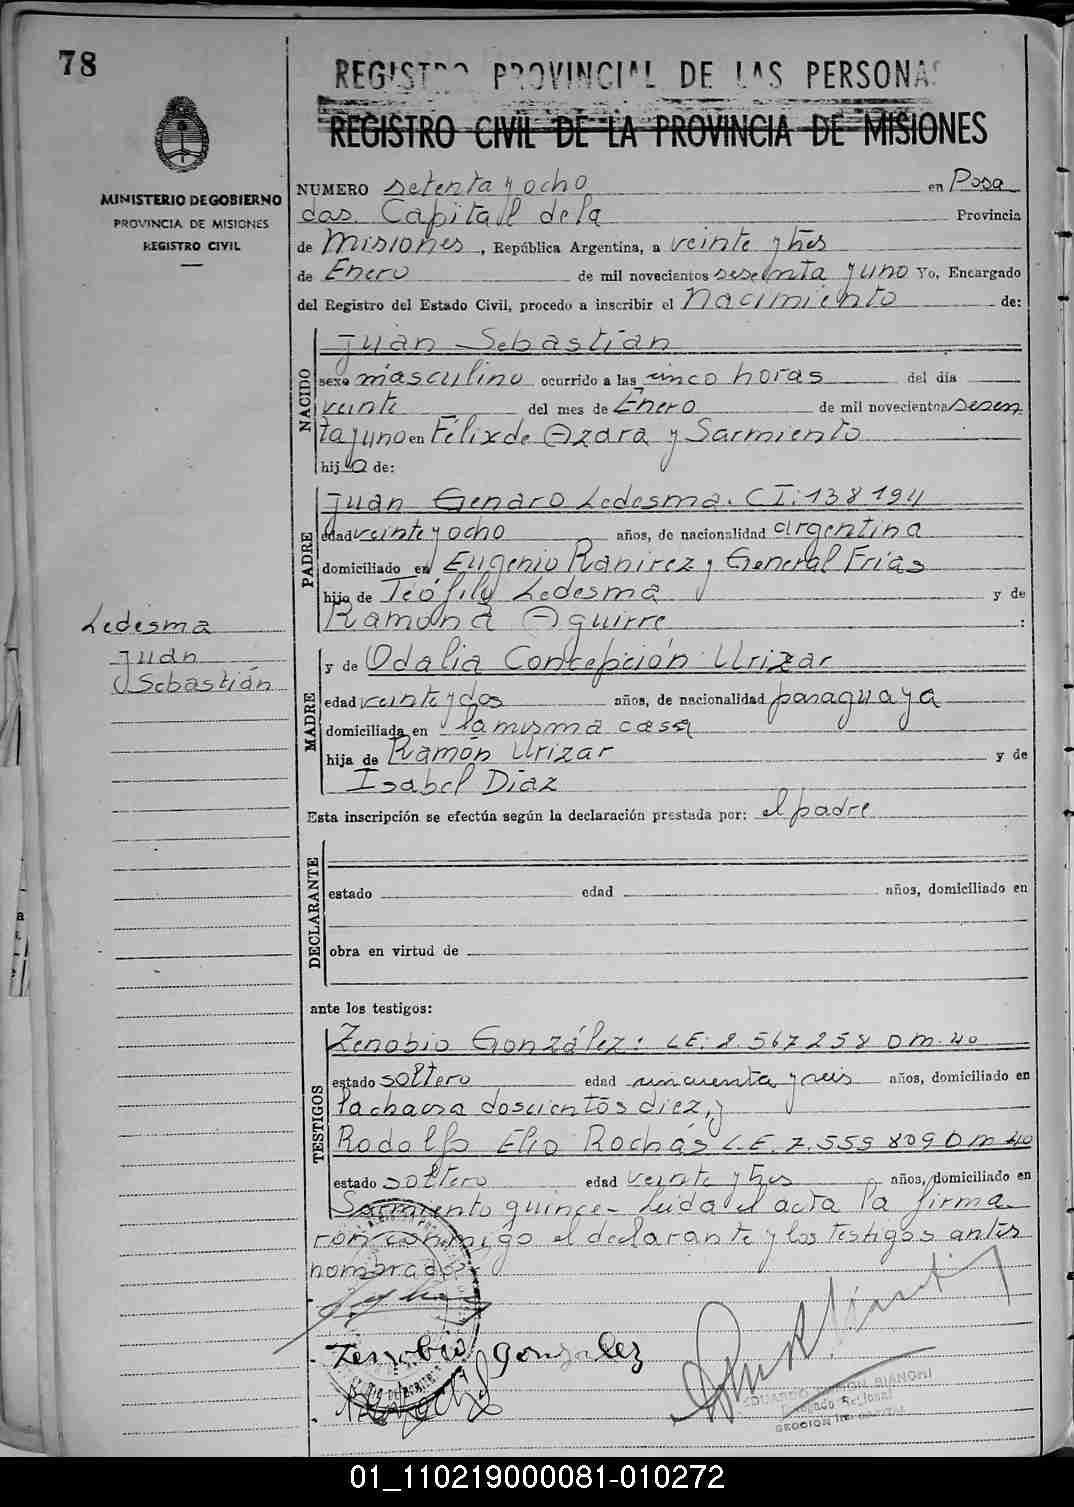 78
REGISTRO PROVINCIAL DE LAS PERSONAS
REGISTRO CIVIL DE LA PROVINCIA DE MISIONES
MINISTERIO DE GOBIERNO
PROVINCIA DE MISIONES
REGISTRO CIVIL
NUMERO setenta y ocho en Posa
das. Capital de la Provincia
de Misiones, República Argentina, a veinte y tres
de Enero de mil novecientos sesenta y uno Yo, Encargado
del Registro del Estado Civil, procedo a inscribir el Nacimiento de:
NACIDO
Juan Sebastian
sexo masculino ocurrido a las cinco horas del día
veinte del mes de Enero de mil novecientos sesen
ta y uno en Félix de Azara y Sarmiento
hijo de:
PADRE
Juan Genaro Ledesma. CI: 138194
edad veinte y ocho años, de nacionalidad argentina
domiciliado en Eugenio Ramirez y General Frias
hijo de Teófilo Ledesma y de
Ramona Aguirre :
Ledesma
Juan
Sebastián
MADRE
y de Odalia Concepción Urizar
edad veinte y dos años, de nacionalidad paraguaya
domiciliada en la misma casa
hija de Ramón Urizar y de
Isabel Diaz
Esta inscripción se efectúa según la declaración prestada por: el padre
DECLARANTE
estado edad años, domiciliado en
obra en virtud de
ante los testigos:
TESTIGOS
Zenobio González: LE: 2.567258 D.M. 40
estado soltero edad cincuenta y seis años, domiciliado en
la chacra doscientos diez, y
Rodolfo Elio Rochás L.E. 7.559809 D M 40
estado soltero edad veinte y tres años, domiciliado en
Sarmiento quince- Leida el acta la firma
ron conmigo el declarante y los testigos antes
nombrados
Zenobio Gonzalez
EDUARDO RAMON BIANCHI
SECCION 1ra. CAPITAL
01_110219000081-010272